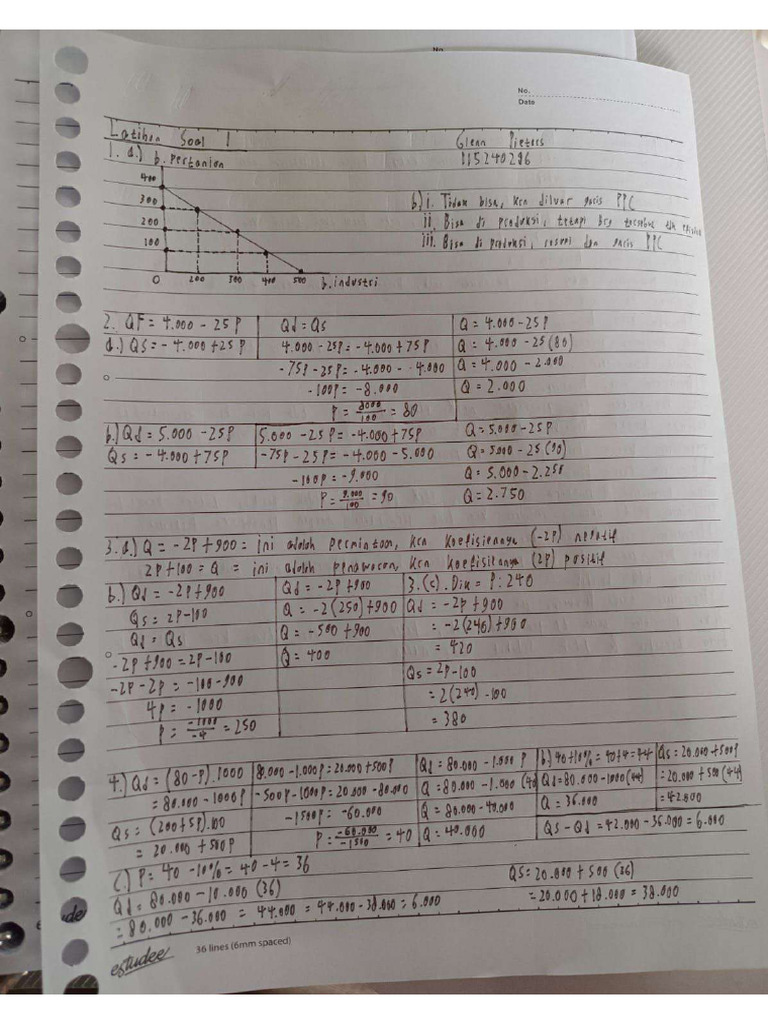 No.
No.
Date
Latihan Soal 1 Glenn Pieters
1. a.) b. Pertanian 115240296
400
300
200
100
0 200 300 400 500 b. industri
b) i. Tidak bisa, krn diluar garis PPC
ii. Bisa di produksi, tetapi brg tersebut tdk
iii. Bisa di produksi, sesuai dgn garis PPC
2. QF = 4.000 - 25 P Qd = Qs Q = 4.000 - 25P
a.) QS = - 4.000 + 25 P 4.000 - 25P = - 4.000 + 75P Q = 4.000 - 25 (80)
-75P - 25P = - 4.000 - 4.000 Q = 4.000 - 2.000
-100P = - 8.000 Q = 2.000
P = 8000/100 = 80
b.) Qd = 5.000 - 25P 5.000 - 25P = - 4.000 + 75P Q = 5.000 - 25P
Qs = - 4.000 + 75P -75P - 25P = - 4.000 - 5.000 Q = 5000 - 25 (90)
-100P = - 9.000 Q = 5.000 - 2.250
P = 9.000/100 = 90 Q = 2.750
3. a.) Q = -2P + 900 = ini adalah permintaan, krn koefisiennya (-2P) negatif
2P + 100 = Q = ini adalah penawaran, krn koefisiennya (2P) positif
b.) Qd = -2P + 900 Qd = -2P + 900 3. (c). Dik = P : 240
Qs = 2P - 100 Q = -2 (250) + 900 Qd = -2P + 900
Qd = Qs Q = -500 + 900 = -2 (240) + 900
-2P + 900 = 2P - 100 Q = 400 = 420
-2P - 2P = -100 - 900 Qs = 2P - 100
4P = - 1000 = 2 (240) - 100
P = -1000/-4 = 250 = 380
4.) Qd = (80 - P) . 1000 80.000 - 1.000P = 20.000 + 500P Qd = 80.000 - 1.000 P b.) 40 + 10% = 40 + 4 = 44 Qs = 20.000 + 500P
= 80.000 - 1000P - 500P - 1000P = 20.000 - 80.000 Q = 80.000 - 1.000 (40) Qd = 80.000 - 1000 (44) = 20.000 + 500 (44)
Qs = (200 + 5P) .100 - 1500P = - 60.000 Q = 80.000 - 40.000 Q = 36.000 = 42.000
= 20.000 + 500P P = -60.000/-1500 = 40 Q = 40.000 Qs - Qd = 42.000 - 36.000 = 6.000
C.) P = 40 - 10% = 40 - 4 = 36 QS = 20.000 + 500 (36)
Qd = 80.000 - 10.000 (36) = 20.000 + 18.000 = 38.000
= 80.000 - 36.000 = 44.000 = 44.000 - 38.000 = 6.000
estudee 36 lines (6mm spaced)